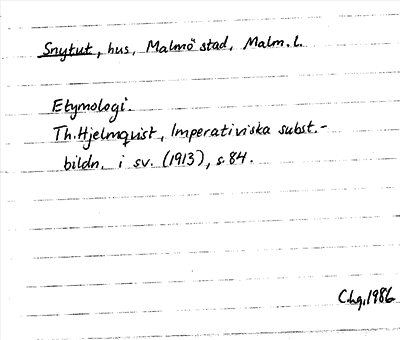 Snytut, hus, Malmö stad, Malm. l.
Etymologi.
Th. Hjelmqvist, Imperativiska subst.-
bildn. i sv. (1913), s. 84.
C.hg, 1986